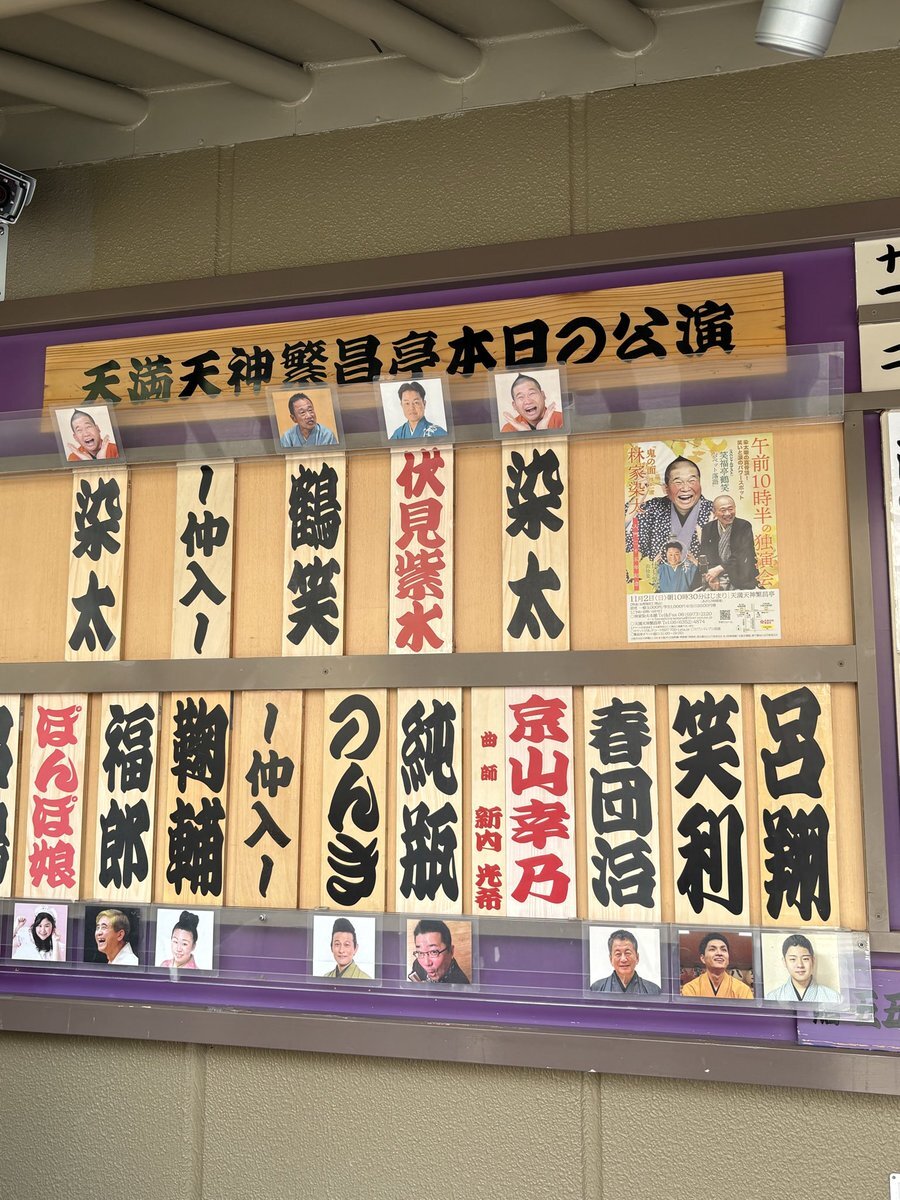 天満天神繁昌亭本日の公演
染太
伏見紫水
鶴笑
〜仲入〜
染太
午前10時半の独演会
笑福亭鶴笑
鬼の面
林家染太
11月2日(日)朝10時30分はじまり 天満天神繁昌亭
呂翔
笑利
春団治
京山幸乃
曲師 新内光希
純瓶
のんき
〜仲入〜
鞠輔
福郎
ぽんぽ娘